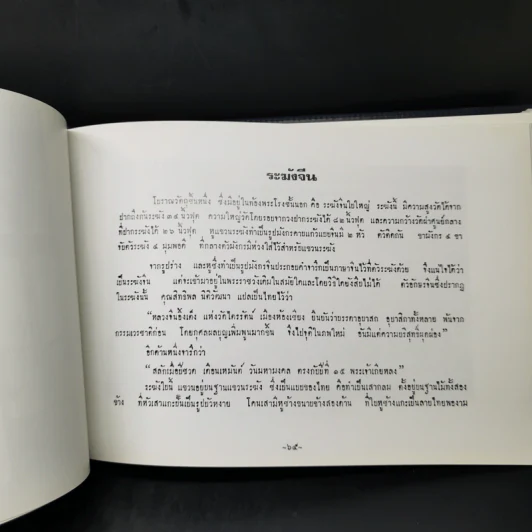 ระฆังจีน
โบราณวัตถุชิ้นหนึ่ง ซึ่งมีอยู่ในห้องพระโรงชั้นนอก คือ ระฆังจีนใบใหญ่ ระฆังนี้ มีความสูงวัดได้จาก
ปากถึงก้นระฆัง ๓๕ นิ้วฟุต ความใหญ่วัดโดยรอบจากวงปากระฆังได้ ๘๒ นิ้วฟุต และความกว้างวัดผ่าศูนย์กลาง
ที่ปากระฆังได้ ๒๖ นิ้วฟุต หูแขวนระฆังทำเป็นรูปมังกรคายแก้วแยจีนมี ๒ หัว ตัวติดกัน ขามังกร ๔ ขา
จับตัวระฆัง ๔ มุมพอดี ที่กลางตัวมังกรมีห่วงใส่ไว้สำหรับแขวนระฆัง
จากรูปร่าง และหูซึ่งทำเป็นรูปมังกรจีนประกอบคำจารึกเป็นภาษาจีนไว้ที่ตัวระฆังด้วย จึงแน่ใจได้ว่า
เป็นระฆังจีน แต่จะเข้ามาอยู่ในพระราชวังเดิมในสมัยใดและโดยวิธีใดยังสืบไม่ได้ ตัวอักษรจีนซึ่งปรากฏ
ในระฆังนี้ คุณสิทธิพล นิติวัฒนา แปลเป็นไทยไว้ว่า
“หลวงจีนอึ้งเต็ง แห่งวัดไตรรัตน์ เมืองห้องเซียง ยืนยันว่าบรรดาอุบาสก อุบาสิกาทั้งหลาย พ้นจาก
กรรมเวรชาติก่อน โดยกุศลผลบุญเพิ่มพูนมากขึ้น จึงไปจุติในภพใหม่ อันมีแต่ความบริสุทธิ์ผุดผ่อง”
อีกด้านหนึ่งจารึกว่า
“สลักเมื่อปีชวด เดือนเหมันต์ วันมหามงคล ตรงกับปีที่ ๑๕ พระเจ้าเกียหลง”
ระฆังใบนี้ แขวนอยู่บนฐานแขวนระฆัง ซึ่งเป็นแบบของไทย คือทำเป็นเสากลม ตั้งอยู่บนฐานไม้ทั้งสอง
ข้าง ที่หัวเสาแกะขึ้นเป็นรูปบัวหงาย โคนเสามีหูช้างขนาบข้างสองด้าน ที่ใบหูช้างแกะเป็นลายไทยพองาม
-๖๕-